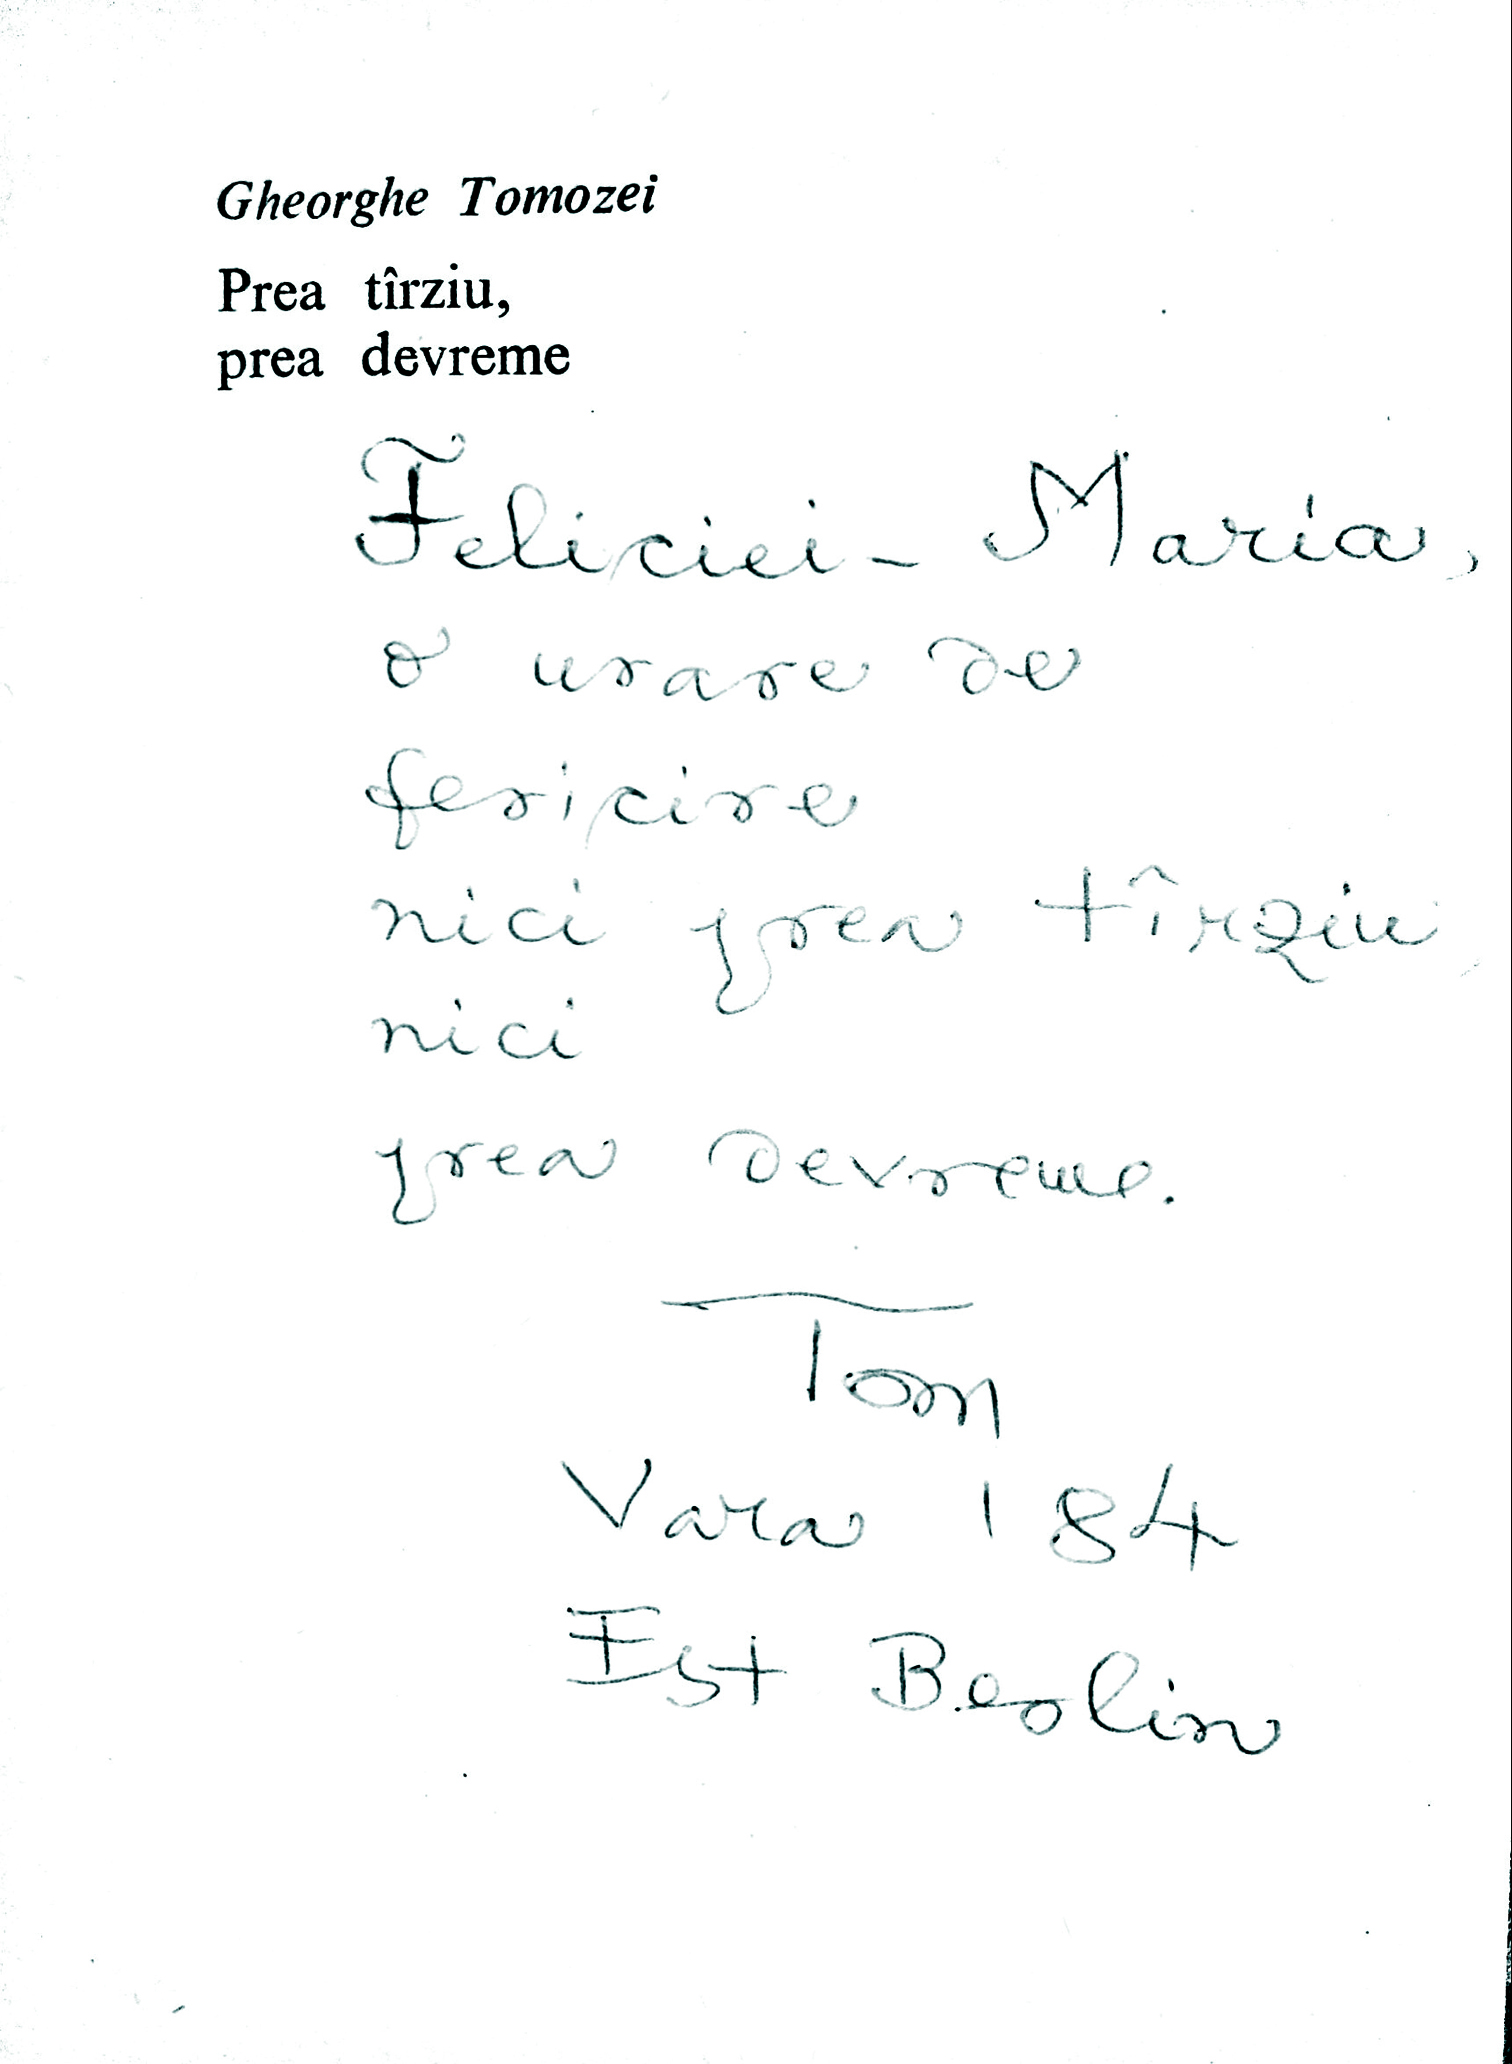 Gheorghe Tomozei
Prea tîrziu,
prea devreme
Feliciei-Maria,
o urare de
fericire
nici prea tîrziu,
nici
prea devreme.
Tom
Vara '84
Est Berlin